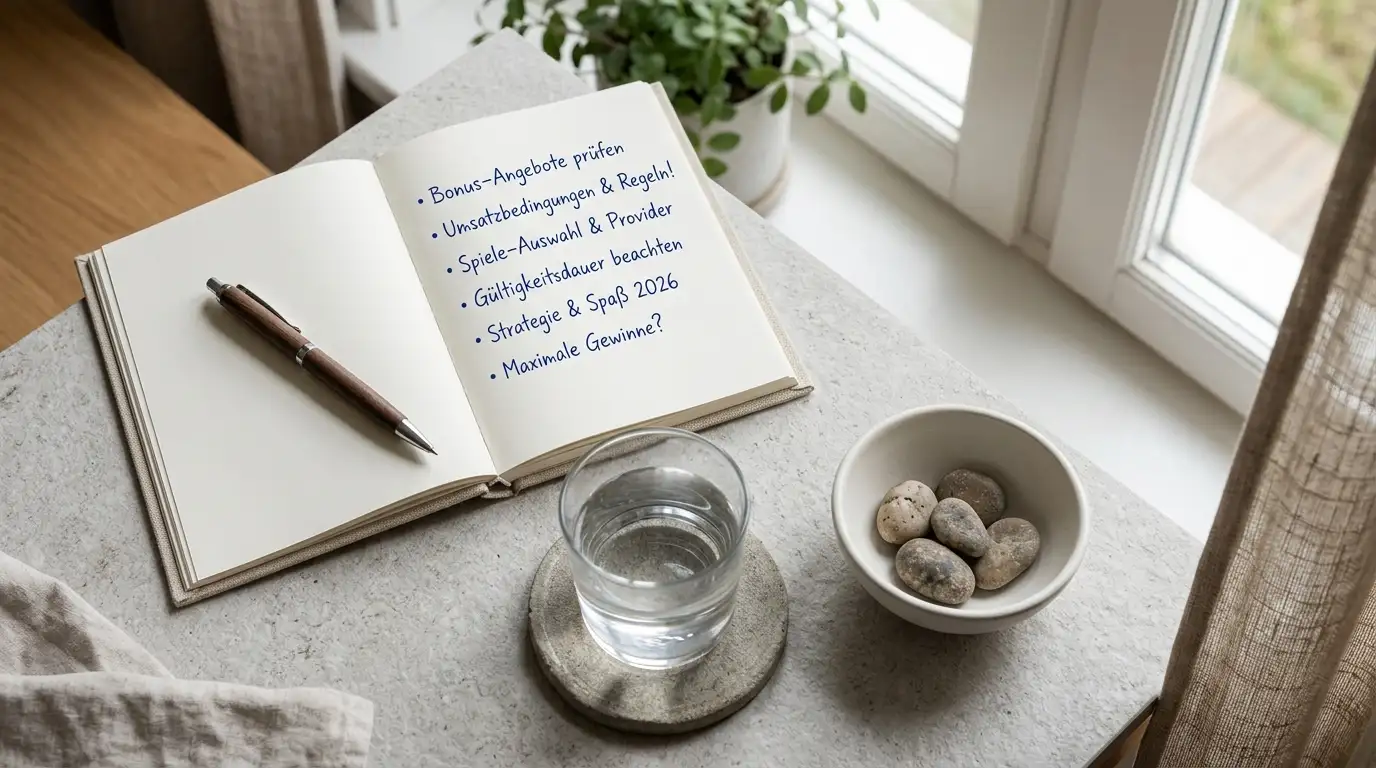 • Bonus-Angebote prüfen
• Umsatzbedingungen & Regeln!
• Spiele-Auswahl & Provider
• Gültigkeitsdauer beachten
• Strategie & Spaß 2026
• Maximale Gewinne?